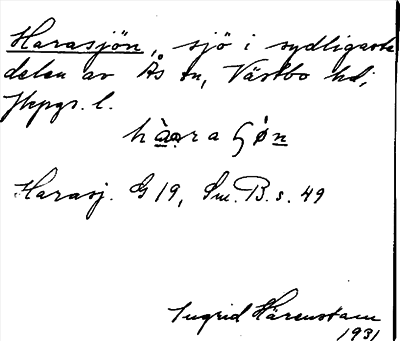 Harasjön, sjö i sydligaste
delen av Ås sn, Västbo hd,
Jkpgs. l.
hàarasøn
Harasj. G 19, Sm. B. s. 49
Ingrid Härenstam
1931